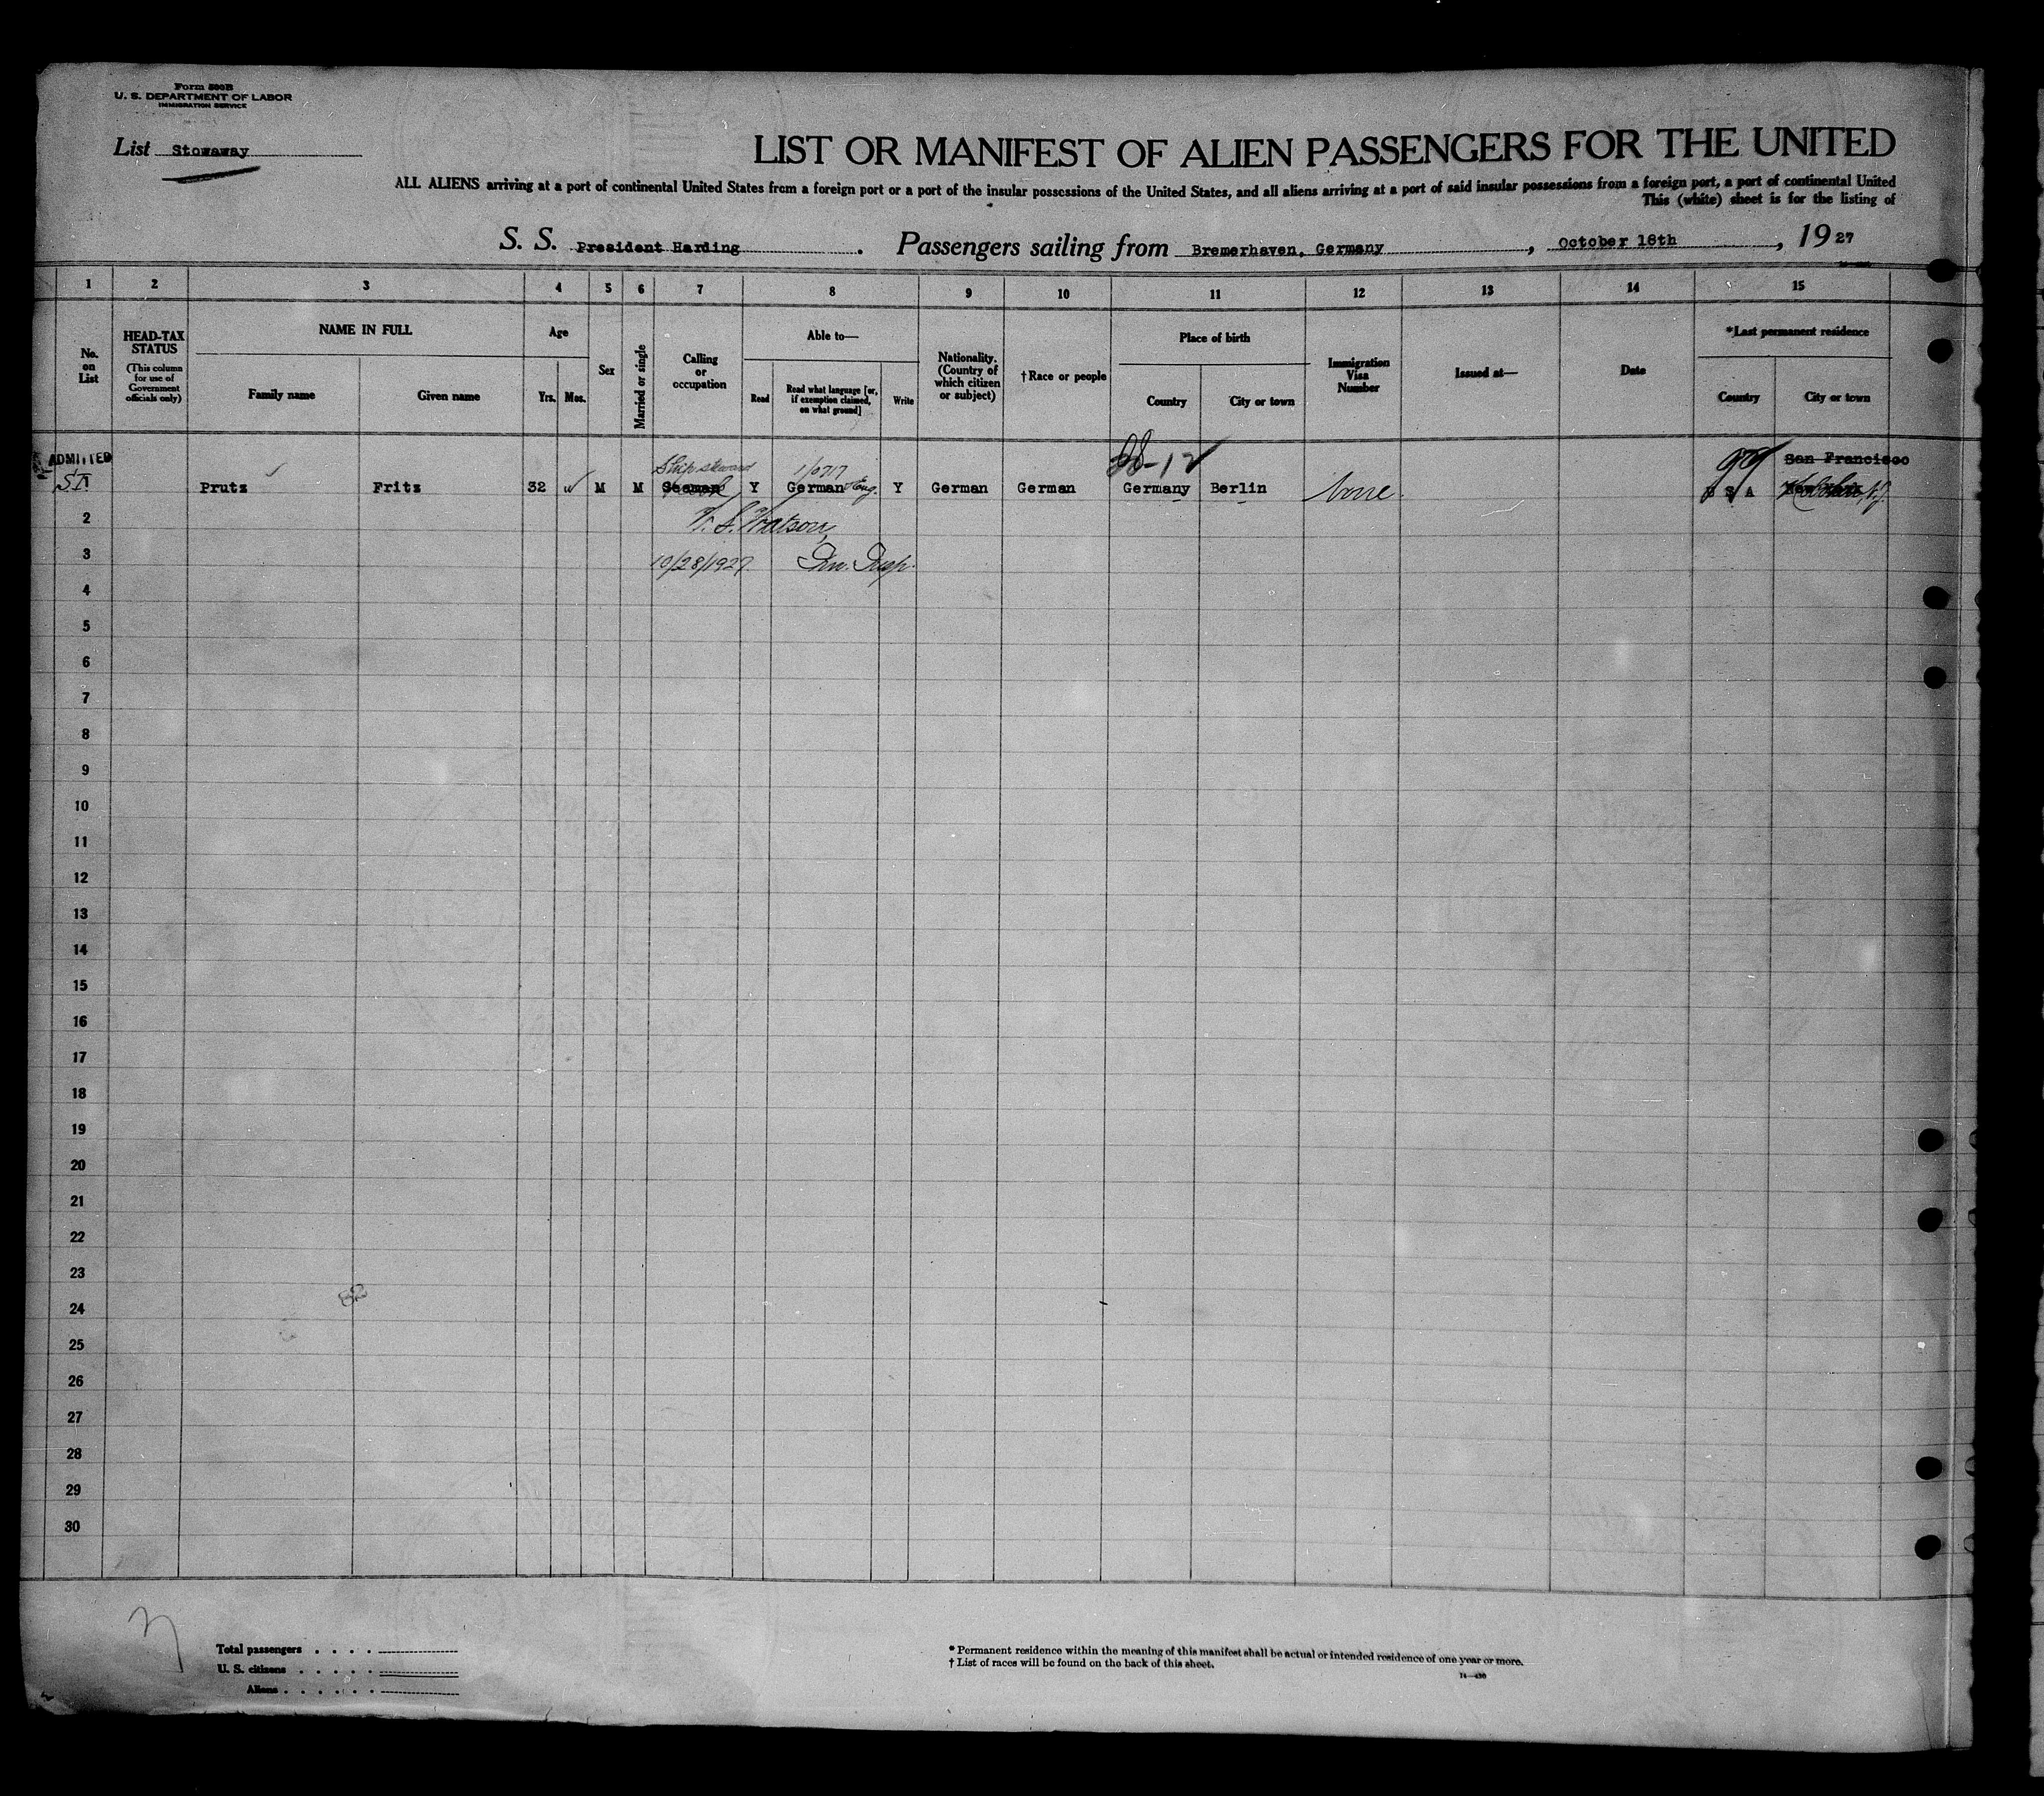 Form 500B
U. S. DEPARTMENT OF LABOR
IMMIGRATION SERVICE
List Stowaway
LIST OR MANIFEST OF ALIEN PASSENGERS FOR THE UNITED
ALL ALIENS arriving at a port of continental United States from a foreign port or a port of the insular possessions of the United States, and all aliens arriving at a port of said insular possessions from a foreign port, a port of continental United
This (white) sheet is for the listing of
S. S. President Harding. Passengers sailing from Bremerhaven, Germany, October 18th, 1927
1 2 3 4 5 6 7 8 9 10 11 12 13 14 15
No. on List
HEAD-TAX STATUS
(This column for use of Government officials only)
NAME IN FULL
Family name Given name
Age
Yrs. Mos.
Sex
Married or single
Calling or occupation
Able to—
Read
Read what language [or, if exemption claimed, on what ground]
Write
Nationality. (Country of which citizen or subject)
†Race or people
Place of birth
Country City or town
Immigration Visa Number
Issued at—
Date
*Last permanent residence
Country City or town
ADMITTED Ship steward 99 San Francisco
1 Prutz Fritz 32 M M Seaman Y German & Eng. Y German German Germany Berlin None U S A Hoboken, N.J.
2 Watson
3 10/28/1927 Imm. Insp.
4
5
6
7
8
9
10
11
12
13
14
15
16
17
18
19
20
21
22
23
24
25
26
27
28
29
30
Total passengers
U. S. citizens
Aliens
* Permanent residence within the meaning of this manifest shall be actual or intended residence of one year or more.
† List of races will be found on the back of this sheet.
14—430